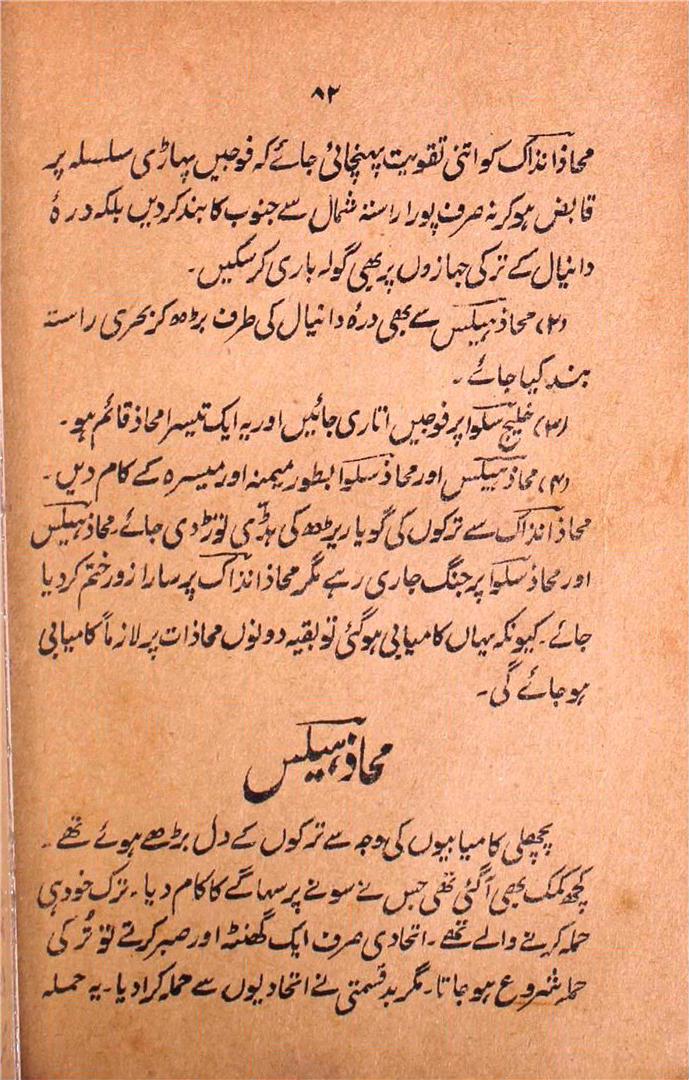 ۸۲
محاذ انذاک کو اتنی تقویت پہنچائی جائے کہ فوجیں پہاڑی سلسلہ پر
قابض ہو کر نہ صرف پورا راستہ شمال سے جنوب کا بند کر دیں بلکہ درۂ
دانیال کے ترکی جہازوں پر بھی گولہ باری کر سکیں۔
(۲) محاذ ہیلکس سے بھی درۂ دانیال کی طرف بڑھ کر بحری راستہ
بند کیا جائے۔
(۳) خلیج سلوا پر فوجیں اتاری جائیں اور یہ ایک تیسرا محاذ قائم ہو۔
(۴) محاذ ہیلکس اور محاذ سلوا بطور میمنہ اور میسرہ کے کام دیں۔
محاذ انذاک سے ترکوں کی گویا ریڑھ کی ہڈی توڑ دی جائے۔ محاذ ہیلکس
اور محاذ سلوا پر جنگ جاری رہے مگر محاذ انذاک پر سارا زور ختم کر دیا
جائے۔ کیونکہ یہاں کامیابی ہو گئی تو بقیہ دونوں محاذات پر لازماً کامیابی
ہو جائے گی۔
محاذ ہیلکس
پچھلی کامیابیوں کی وجہ سے ترکوں کے دل بڑھے ہوئے تھے۔
کچھ کمک بھی آ گئی تھی جس نے سونے پر سہاگے کا کام دیا۔ ترک خود ہی
حملہ کرنے والے تھے۔ اتحادی صرف ایک گھنٹہ اور صبر کرتے تو تُرکی
حملہ شروع ہو جاتا۔ مگر بدقسمتی نے اتحادیوں سے حملہ کرا دیا۔ یہ حملہ